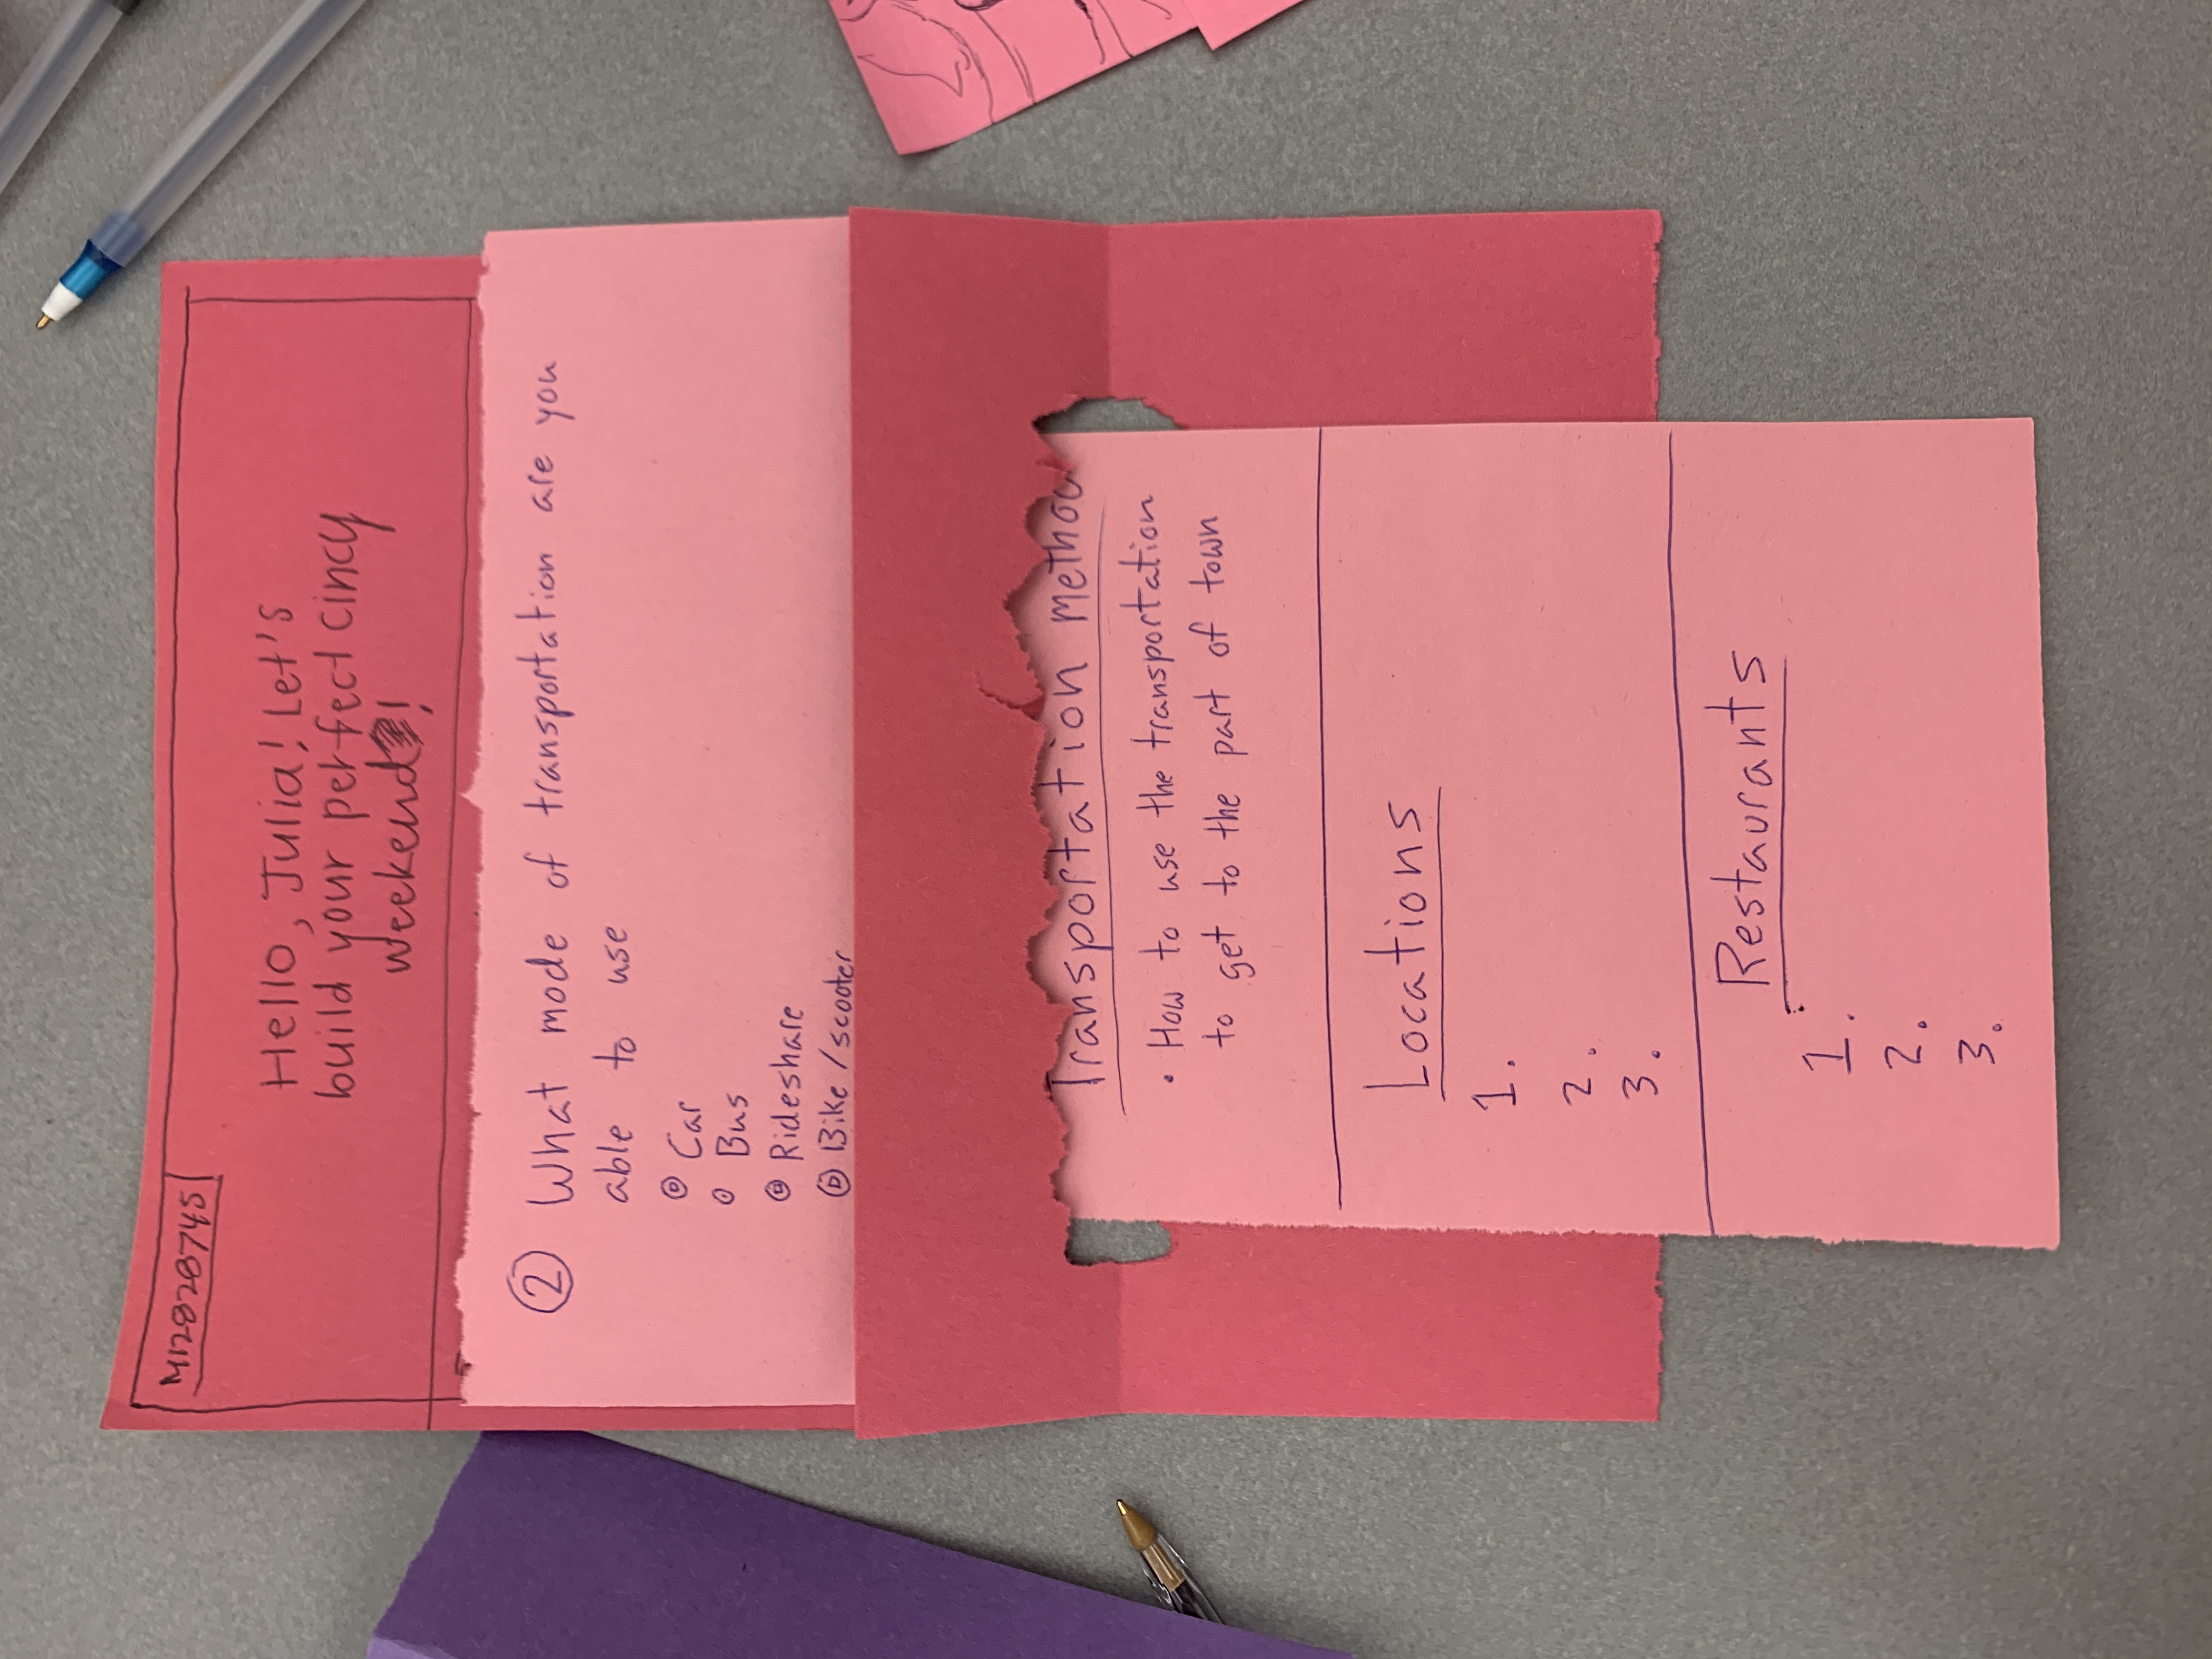 M12828745
Hello, Julia! Let's
build your perfect cincy
weekend!
② What mode of transportation are you
able to use
Car
Bus
Rideshare
Bike/scooter
Transportation Method
• How to use the transportation
to get to the part of town
Locations
1.
2.
3.
Restaurants
1.
2.
3.